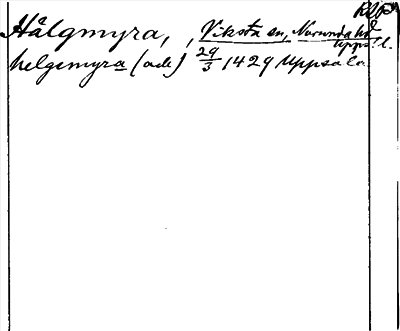 Hålgmyra, , Viksta sn, Norunda hd
Upps. l.
helgemyra (ack) 29/3 1429 Uppsala